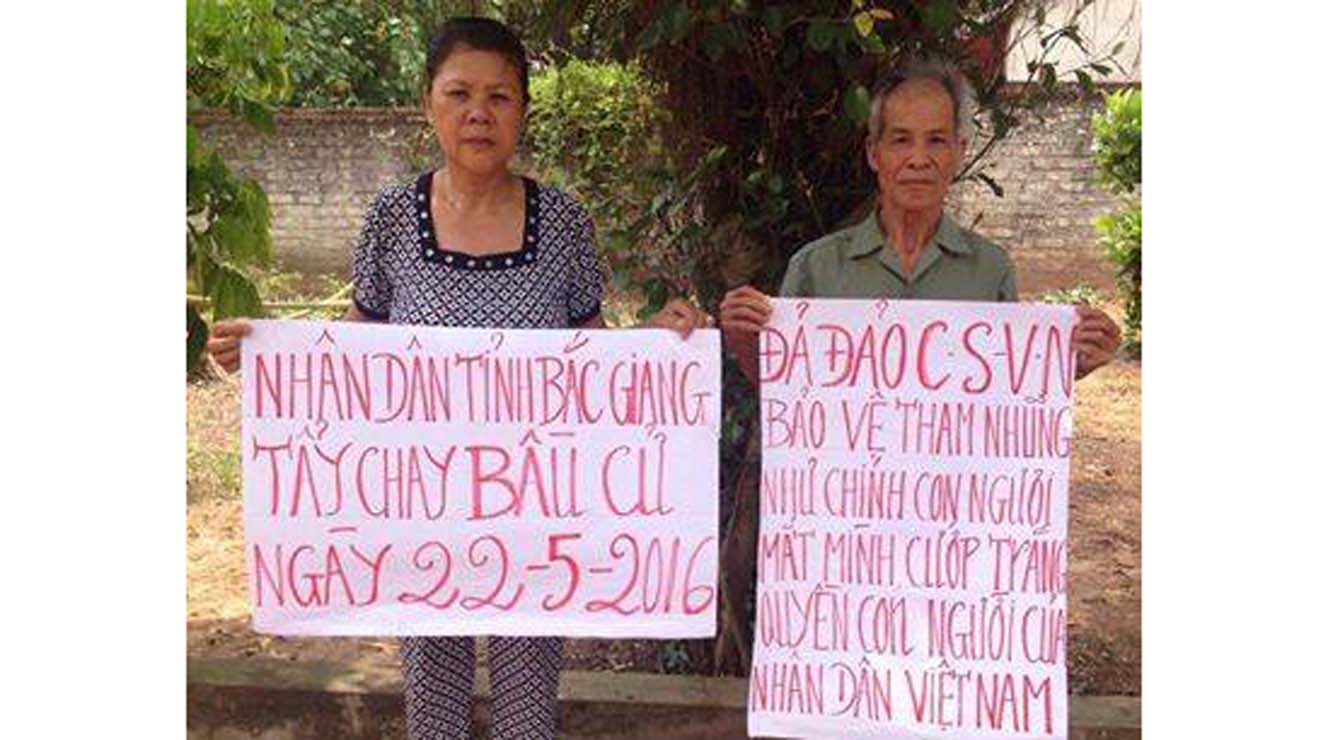 NHÂN DÂN TỈNH BẮC GIANG
TẨY CHAY BẦU CỬ
NGÀY 22-5-2016
ĐẢ ĐẢO C·S·V·N
BẢO VỆ THAM NHŨNG
NHƯ CHÍNH CON NGƯƠI
MẮT MÌNH CƯỚP TRẮNG
QUYỀN CON NGƯỜI CỦA
NHÂN DÂN VIỆT NAM